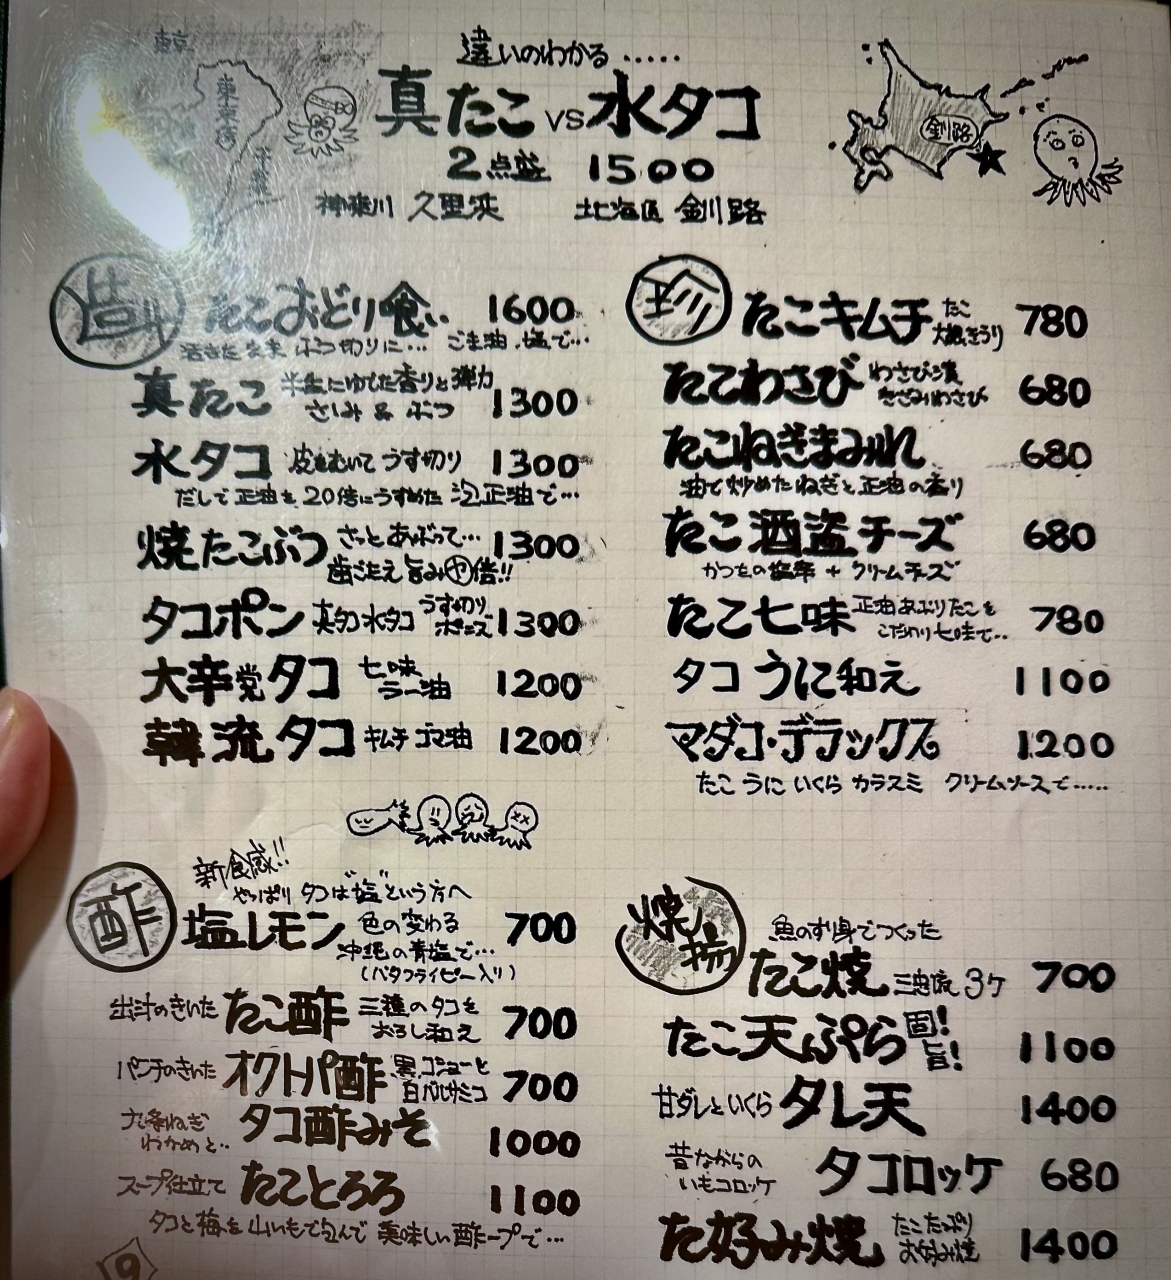 東京
東京湾
千葉
違いのわかる・・・・・
真たこ VS 水タコ
2点盛 1500
神奈川 久里浜 北海道 釧路
釧路
たこおどり喰い 1600
活きたままぶつ切りに… ごま油、塩で…
真たこ 半生にゆでした香りと弾力 さしみ & ぶつ 1300
水タコ 皮をむいてうす切り 1300
だしで正油を20倍にうすめた泡正油で…
焼たこぶつ さっとあぶって… 1300
歯ごたえ旨み倍!!
タコポン 真タコ水タコ うす切りポン酢 1300
大辛党タコ 七味 ラー油 1200
韓流タコ キムチ ゴマ油 1200
珍
たこキムチ たこ 大根 きうり 780
たこわさび わさび漬 きざみわさび 680
たこねぎまみれ 680
油で炒めたねぎと正油の香り
たこ酒盗チーズ 680
かつおの塩辛 + クリームチーズ
たこ七味 正油あぶりたこを こだわり七味で… 780
タコうに和え 1100
マダコ・デラックス 1200
たこ うに いくら カラスミ クリームソースで・・・・・
酢
新食感!!
やっぱりタコは"塩"という方へ
塩レモン 色の変わる 沖縄の青塩で… 700
(バタフライピー入り)
出汁のきいた たこ酢 三種のタコを おろし和え 700
パンチのきいた オクトパ酢 黒コショーと 白バルサミコ 700
九条ねぎ わかめと… タコ酢みそ 1000
スープ仕立て たことろろ 1100
タコと梅を山いもで包んで 美味しい酢ープで…
9
焼揚
魚のすり身でつくった
たこ焼 3ケ 700
たこ天ぷら 固! 旨! 1100
甘ダレといくら タレ天 1400
昔ながらの いもコロッケ タコロッケ 680
た好み焼 たこたっぷり お好み焼 1400